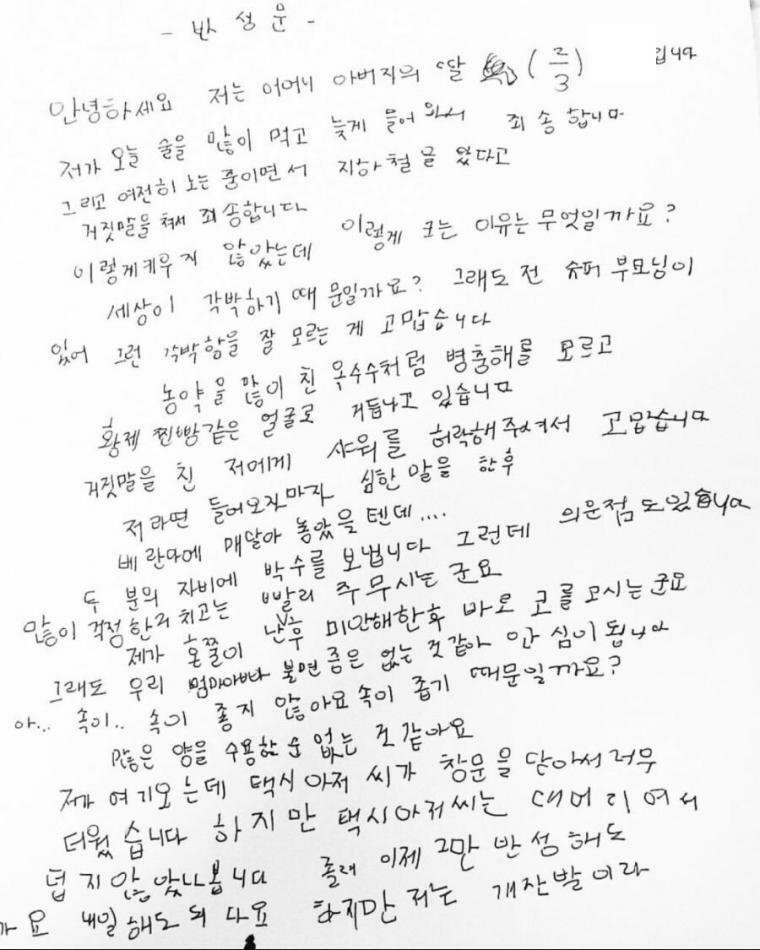 - 반성문 -
안녕하세요 저는 어머니 아버지의 딸 (2/3) 입니다
저가 오늘 술을 많이 먹고 늦게 들어와서 죄송합니다
그리고 여전히 노는 중이면서 지하철을 탔다고
거짓말을 쳐서 죄송합니다
이렇게키우지 않았는데 이렇게 크는 이유는 무엇일까요?
세상이 각박하기 때문일까요? 그래도 전 슈퍼 부모님이
있어 그런 각박함을 잘 모르는 게 고맙습니다
농약을 많이 친 옥수수처럼 병충해를 모르고
황제 찐빵같은 얼굴로 거듭나고 있습니다
거짓말을 친 저에게 샤워를 허락해주셔서 고맙습니다
저라면 들어오자마자 심한 말을 한후
베란다에 매달아 놓았을텐데....
두 분의 자비에 박수를 보냅니다 그런데 의문점도있습니다
많이 걱정한거 치고는 빨리 주무시는군요
제가 혼쭐이 난후 미안해한후 바로 코를 고시는군요
그래도 우리 엄마아빠 불면증은 없는 것같아 안심이됩니다
아... 속이.. 속이 좋지 않아요 속이 좁기 때문일까요?
많은 양을 수용할 순 없는 것 같아요
제가 여기오는데 택시 아저씨가 창문을 닫아서 너무
더웠습니다 하지만 택시아저씨는 대머리여서
덥지않았나봅니다 졸려 이제 그만 반성해도
가요 내일 해도 되 다요 하지만 저는 개잔발이라